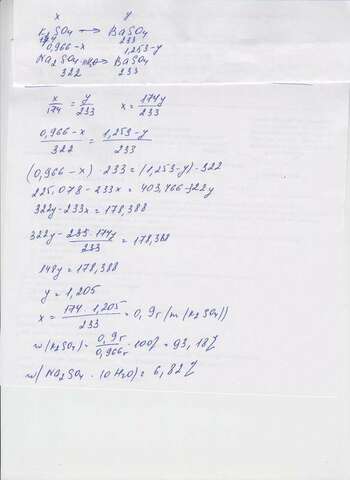 x y
K2SO4 → BaSO4
174 233
0,966-x 1,253-y
Na2SO4·10H2O → BaSO4
322 233
x/174 = y/233 x = 174y/233
0,966-x/322 = 1,253-y/233
(0,966-x)·233 = (1,253-y)·322
225,078-233x = 403,466-322y
322y-233x = 178,388
322y - 233·174y/233 = 178,388
148y = 178,388
y = 1,205
x = 174·1,205/233 = 0,9г (m(K2SO4))
w(K2SO4) = 0,9г/0,966г · 100% = 93,18%
w(Na2SO4·10H2O) = 6,82%